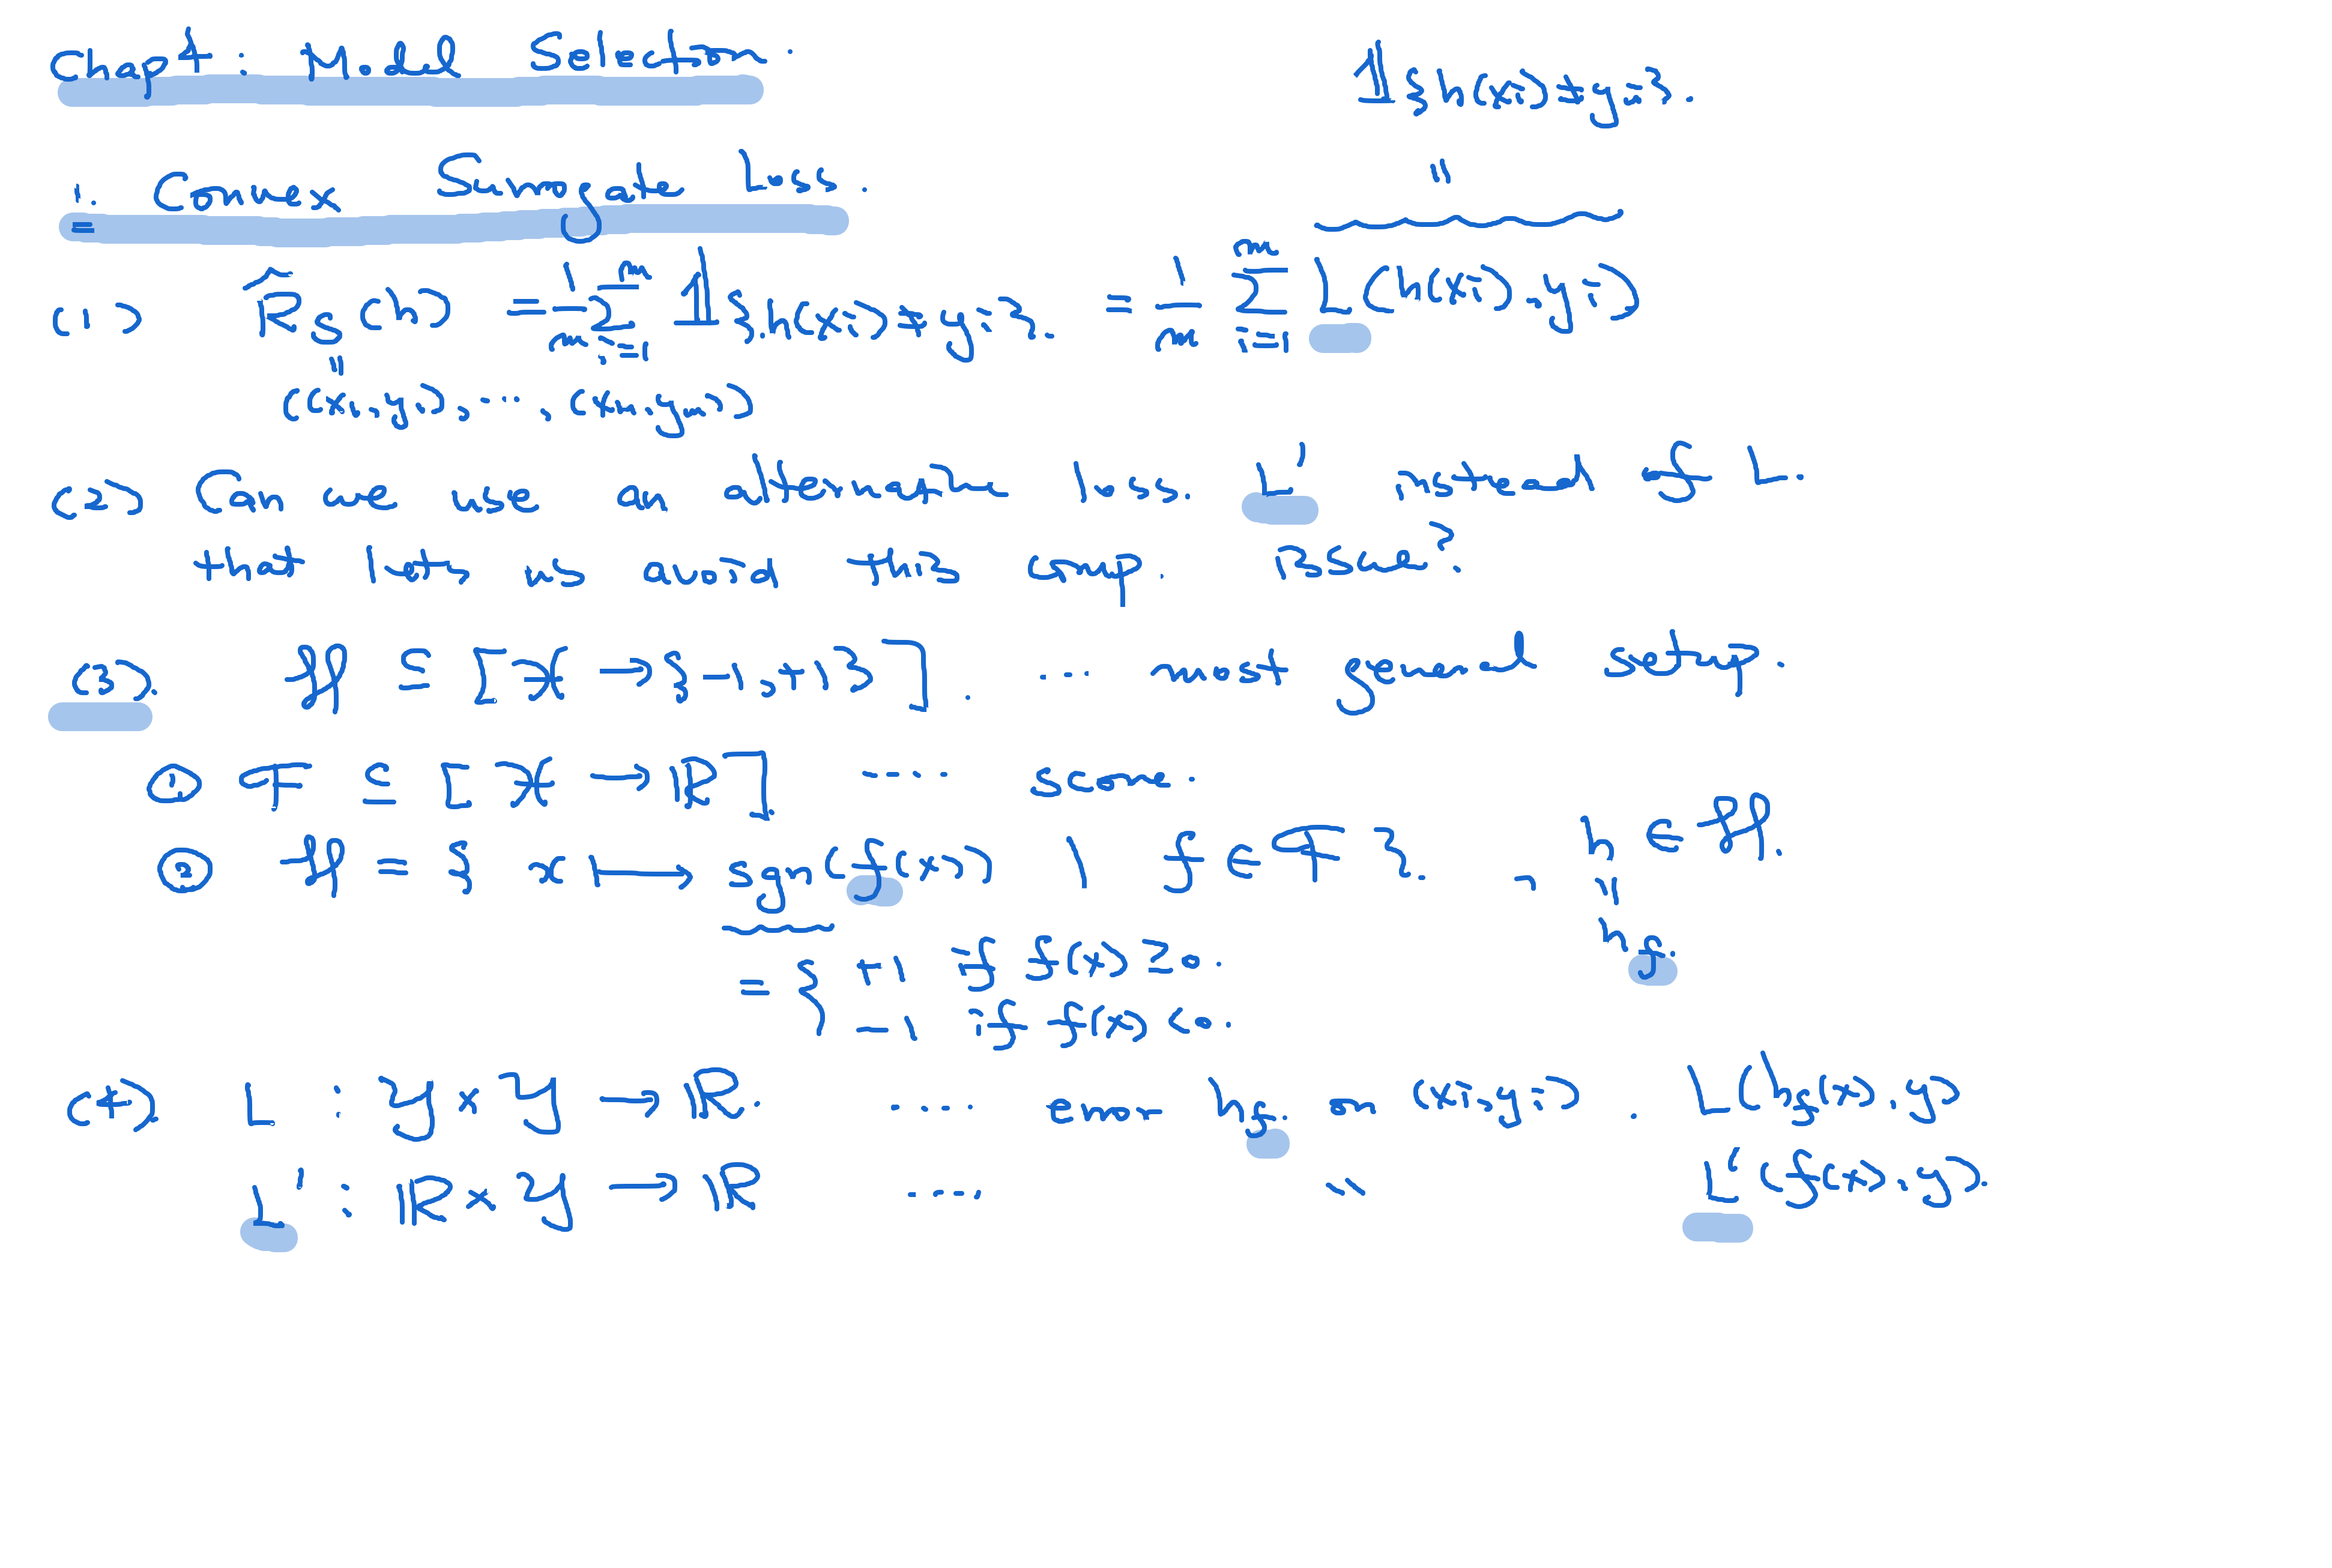 Chap 4 : Model Selection.
1. Convex Surrogate Loss.
𝟙{h(xᵢ)≠yᵢ}.
=
(1) R̂_S(h) = 1/m Σ_{i=1}^m 𝟙{h(xᵢ)≠yᵢ}. = 1/m Σ_{i=1}^m L(h(xᵢ), yᵢ)
=
((x₁,y₁), ..., (xₘ,yₘ))
(2) Can we use an alternative loss. L' instead of L.
that lets us avoid this comp. issue?
(3). H ⊆ [X → {-1,+1}]. ... most general setup.
① F ⊆ [X → R] .... score.
② H = { x ↦ sgn(f(x)) | f ∈ F }. , h ∈ H.
=
h_f.
= { +1 if f(x) ≥ 0.
-1 if f(x) < 0.
(4). L : Y × Y → R. .... error h_f. on (xᵢ,yᵢ) . L(h_f(x), y)
L' : R × Y → R .... 〃 L'(f(x), y).